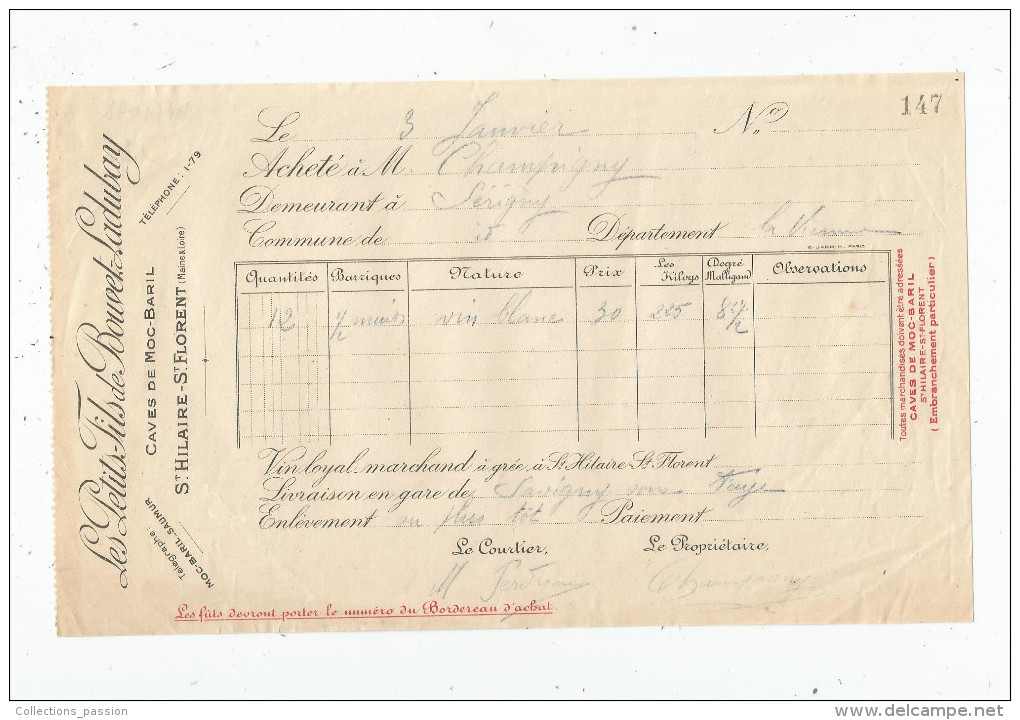 Les Petits-Fils de Bouvet-Ladubay
CAVES DE MOC-BARIL
ST HILAIRE-ST FLORENT (Maine & Loire)
TÉLÉPHONE: 1-79
Télégraphe:
MOC-BARIL-SAUMUR
147
Le 3 Janvier No
Acheté à M. Champigny
Demeurant à Sérigny
Commune de Département la Vienne
E. JARRY, PARIS
Quantités Barriques Nature Prix Les Kilogs Degré Malligand Observations
12 1/2 muids vin blanc 30 225 8 1/2
Vin loyal-marchand à grée, à St Hilaire St Florent
Livraison en gare de Savigny sous Faye
Enlèvement au plus tôt Paiement
Le Courtier, Le Propriétaire,
M Champigny
Les fûts devront porter le numéro du Bordereau d'achat.
Toutes marchandises doivent être adressées
CAVES DE MOC-BARIL
ST HILAIRE-ST FLORENT
(Embranchement particulier)
Collections_passion
delcampe.net